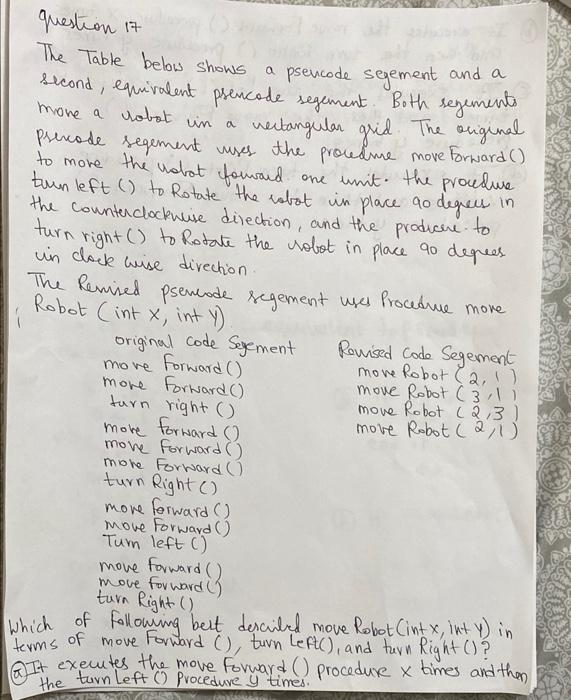 question 17
The Table below shows a pseucode segement and a
second, equivalent psencode segement. Both segements
move a robot in a rectangular grid. The original
psencode segement uses the procedure move Forward()
to move the robot forward one unit. the procedure
turn left () to Rotate the robot in place 90 degrees in
the counterclockwise direction, and the producere to
turn right() to Rotate the robot in place 90 degrees
in clock wise direction.
The Remised psencode segement uses Procedure move
Robot (int X, int Y)
original Code Segement Rewised Code Segement
move Forward() move Robot (2,1)
move Forward() move Robot (3,1)
turn right () move Robot (2,3)
move forward () move Robot (2,1)
move Forward()
move Forward()
turn Right()
move forward()
move Forward()
Turn left ()
move forward()
move forward()
turn Right()
Which of following best descriled move Robot(int x, int y) in
terms of move Forward (), turn Left(), and turn Right ()?
(a) It executes the move Forward () procedure x times and then
the turn Left () Procedure y times.